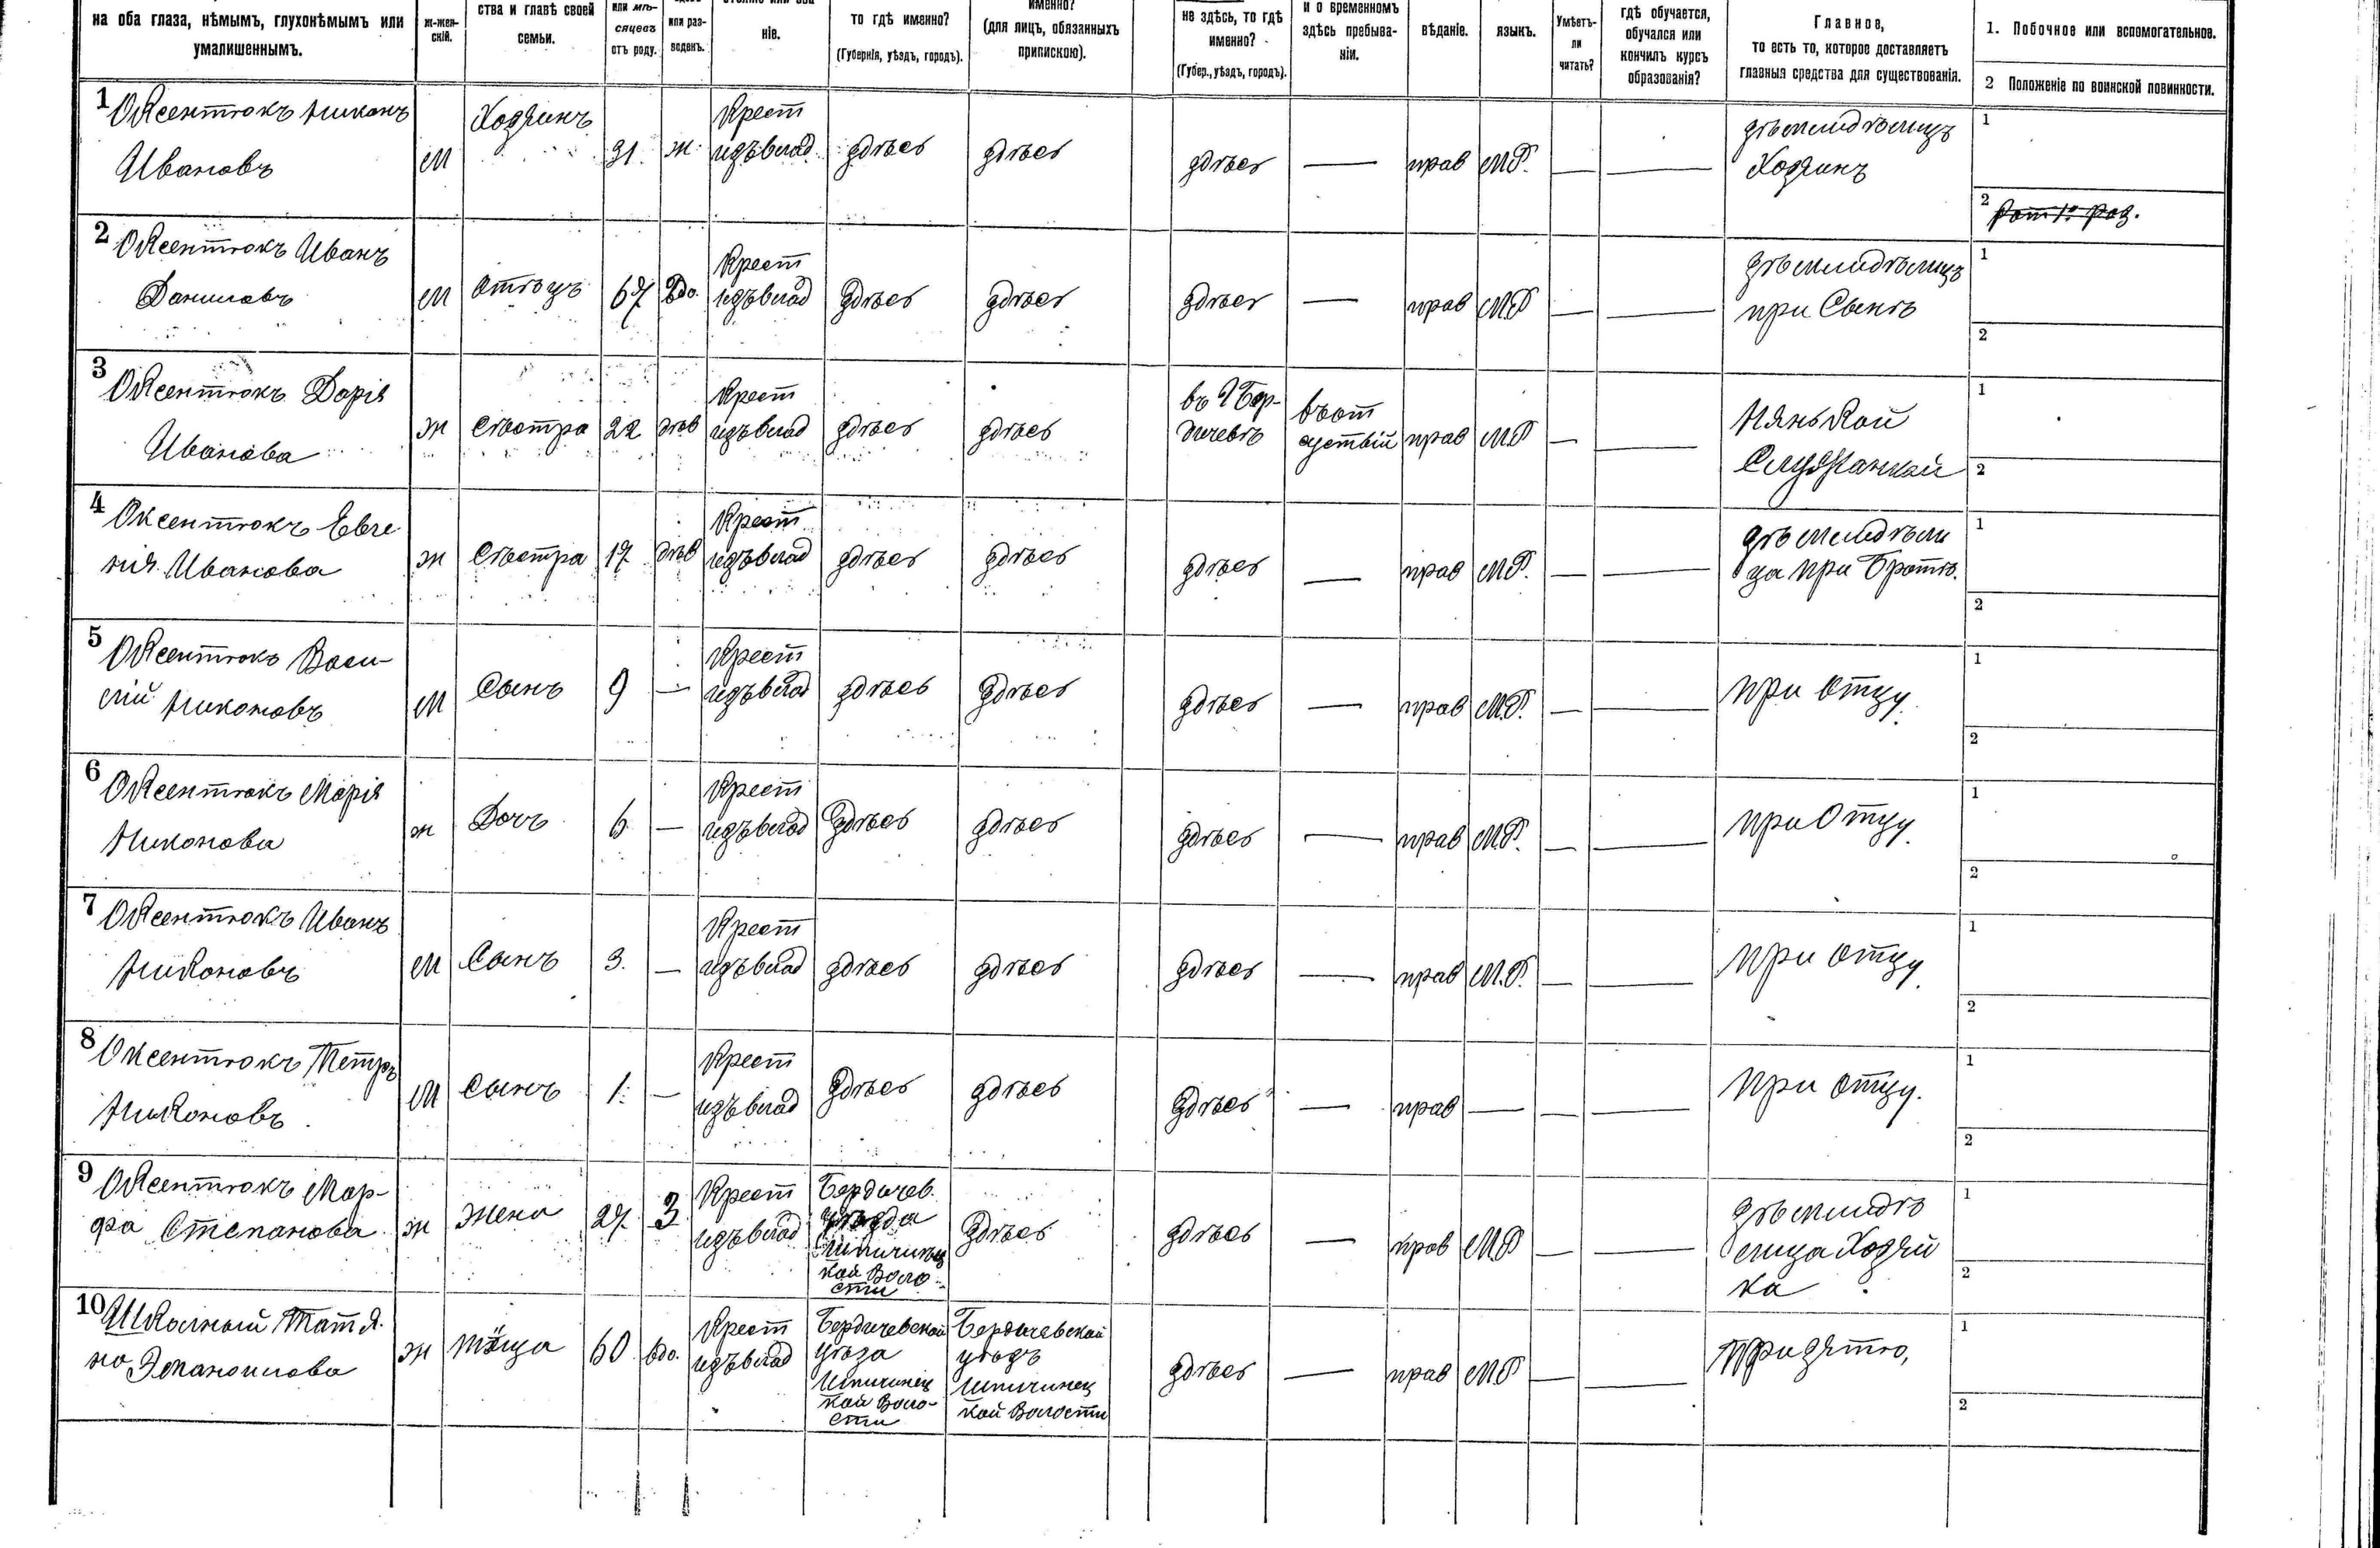 на оба глаза, нѣмымъ, глухонѣмымъ или
умалишеннымъ.
ж-жен-
скій.
ства и главѣ своей
семьи.
или мѣ-
сяцевъ
отъ роду.
или раз-
веденъ.
ніе.
то гдѣ именно?
(Губернія, уѣздъ, городъ).
именно?
(для лицъ, обязанныхъ
припискою).
не здѣсь, то гдѣ
именно?
(Губер., уѣздъ, городъ).
и о временномъ
здѣсь пребыва-
ніи.
вѣданіе.
языкъ.
Умѣетъ-
ли
читать?
гдѣ обучается,
обучался или
кончилъ курсъ
образованія?
Главное,
то есть то, которое доставляетъ
главныя средства для существованія.
1. Побочное или вспомогательное.
2 Положеніе по воинской повинности.
1 Оксентюкъ Никонъ
Ивановъ
м
Хозяинъ
31.
ж.
Крест
изъ влад.
здѣсь
здѣсь
здѣсь
—
прав
М.Р.
—
—
зѣмлидѣлицъ
Хозяинъ
1
2
2 Оксентюкъ Иванъ
Даниловъ
м
Отѣцъ
67
Вдо.
Крест
изъ влад
здѣсь
здѣсь
здѣсь
—
прав
М.Р
—
—
зѣмлидѣлицъ
при Сынѣ
1
2
3 Оксентюкъ Дарія
Иванова
ж
Сѣстра
22
дѣв
Крест
изъ влад
здѣсь
здѣсь
въ Г Бер-
дичевѣ
въ от
сустьвіи
прав
М.Р
—
—
Нянькой
Служанкой
1
2
4 Оксентюкъ Евге
нія Иванова
ж
Сѣстра
17
дѣв
Крест
изъ влад
здѣсь
здѣсь
здѣсь
—
прав
М.Р.
—
—
зѣмлидѣли
ца при Братѣ.
1
2
5 Оксентюкъ Васи-
лій Никоновъ
м
Сынъ
9
—
Крест
изъ влад
здѣсь
здѣсь
здѣсь
—
прав
М.Р.
—
—
при Отцу.
1
2
6 Оксентюкъ Марія
Никонова
ж
Дочъ
6
—
Крест
изъ влад
здѣсь
здѣсь
здѣсь
—
прав
М.Р.
—
—
при Отцу.
1
2
7 Оксентюкъ Иванъ
Никоновъ
м
Сынъ
3.
—
Крест
изъ влад
здѣсь
здѣсь
здѣсь
—
прав
М.Р.
—
—
при Отцу.
1
2
8 Оксентюкъ Петръ
Никоновъ
м
Сынъ
1.
—
Крест
изъ влад
здѣсь
здѣсь
здѣсь
—
прав
—
—
—
при Отцу.
1
2
9 Оксентюкъ Мар-
фа Степанова
ж
Жена
27.
З
Крест
изъ влад
Бердичев.
уѣзда
Шпичинец
кой Воло-
сти
здѣсь
здѣсь
—
прав
М.Р
—
—
зѣмлидѣ
лица Хозяй
ка
1
2
10 Школьный Татя.
на Эмануилова
ж
тёща
60
вдо.
Крест
изъ влад
Бердичевской
уѣза
Шпичинец
кой Воло-
сти
Бердичевской
уѣздъ
Шпичинец
кой Волости
здѣсь
—
прав
М.Р
—
—
При зятю,
1
2